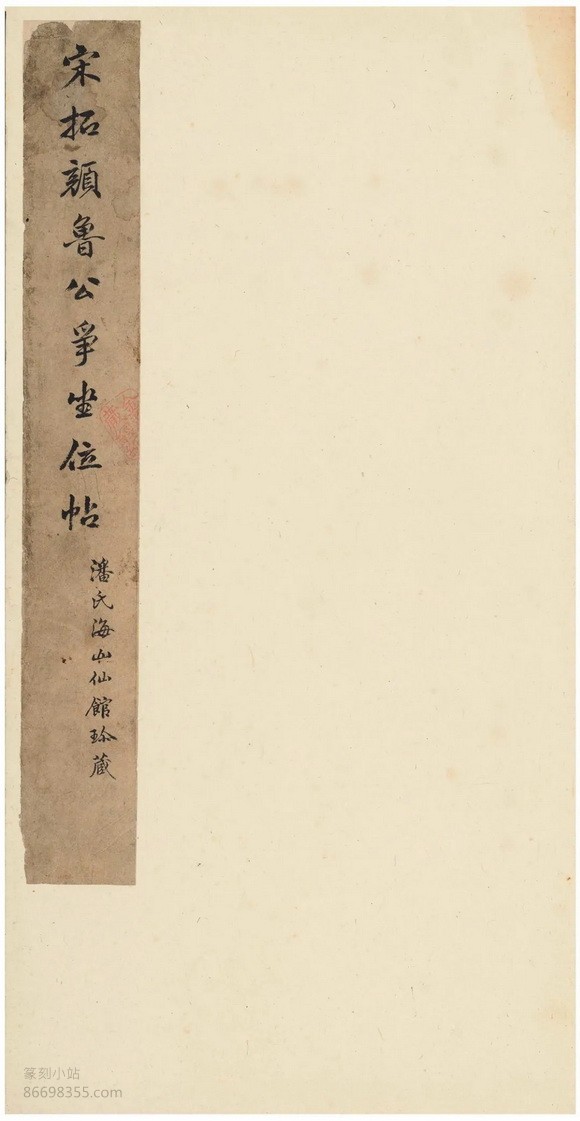 宋拓顔魯公爭坐位帖
潘氏海山仙館珍藏
篆刻小站
86698355.com